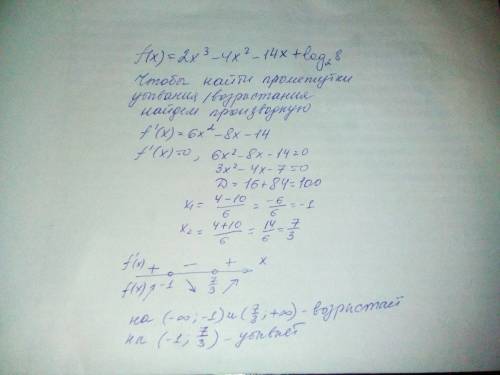 f(x)=2x³-4x²-14x+log₂8
Чтобы найти промежутки
убывания/возрастания
найдем производную
f'(x)=6x²-8x-14
f'(x)=0, 6x²-8x-14=0
3x²-4x-7=0
D=16+84=100
x₁=(4-10)/6=-6/6=-1
x₂=(4+10)/6=14/6=7/3
f'(x) + - + x
f(x) ↗ -1 ↘ 7/3 ↗
на (-∞;-1) и (7/3;+∞) - возрастает
на (-1; 7/3) - убывает